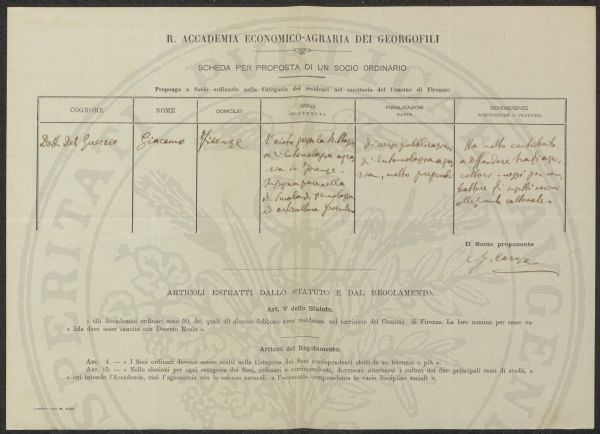 R. ACCADEMIA ECONOMICO-AGRARIA DEI GEORGOFILI
SCHEDA PER PROPOSTA DI UN SOCIO ORDINARIO
Propongo a Socio ordinario nella Categoria dei residenti nel territorio del Comune di Firenze:
COGNOME
NOME
DOMICILIO
UFFICI
SOSTENUTI
PUBBLICAZIONI
FATTE
BENEMERENZE
SCIENTIFICHE O PRATICHE
Dott. Del Guercio
Giacomo
Firenze
R. Stazio
ne di Entomologia agra
ria in Firenze.
Insegna
di Pomologia
ed orticultura
Diverse pubblicazioni
di Entomologia agra
ria, molto
Ha molto contribuito
a diffondere tra gli agri
coltori i mezzi per com
battere gl'insetti nocivi
alle piante coltivate.
Il Socio proponente
ARTICOLI ESTRATTI DALLO STATUTO E DAL REGOLAMENTO.
Art. V dello Statuto.
« Gli Accademici ordinari sono 60, dei quali 40 almeno debbono aver residenza nel territorio del Comune di Firenze. La loro nomina per esser va-
« lida deve esser sancita con Decreto Reale ».
Articoli del Regolamento.
ART. 4. — « I Soci ordinari devono essere scelti nella Categoria dei Soci corrispondenti eletti da un triennio o più ».
ART. 15. — « Nelle elezioni per ogni categoria dei Soci, ordinari e corrispondenti, dovranno alternarsi i cultori dei due principali rami di studi, a
« cui intende l'Accademia, cioè l'agronomia con le scienze naturali, e l'economia comprendente le varie discipline sociali ».